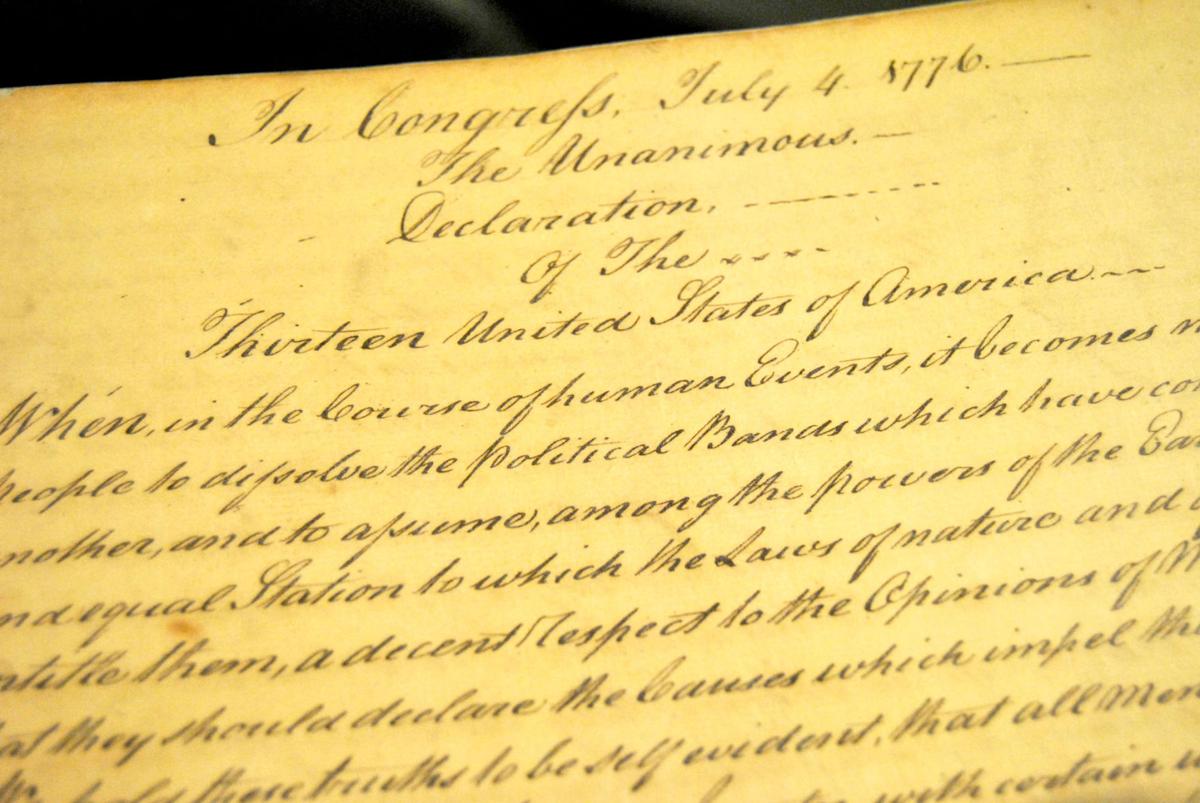 In Congreſs, July 4. 1776.
The Unanimous.
Declaration,
Of The
Thirteen United States of America.
When, in the Course of human Events, it becomes n
people to diſsolve the political Bands which have con
nother, and to aſsume, among the powers of the Ear
nd equal Station to which the Laws of nature and
ntitle them, a decent respect to the Opinions of M
at they should declare the Causes which impel the
We hold these truths to be self evident, that all Men
with certain u